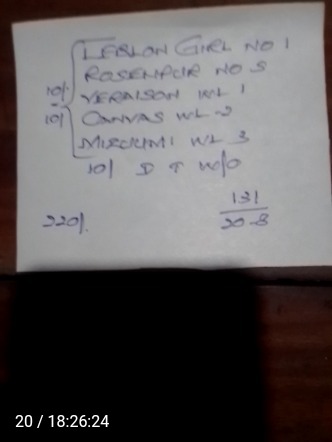 LEBLON GIRL NO 1
ROSENPUR NO 5
10/- VERAISON WL 1
10/ CANVAS WL-2
MIZOUMI WL 3
10/ D T W/O
131
220/. 20-8
20 / 18:26:24